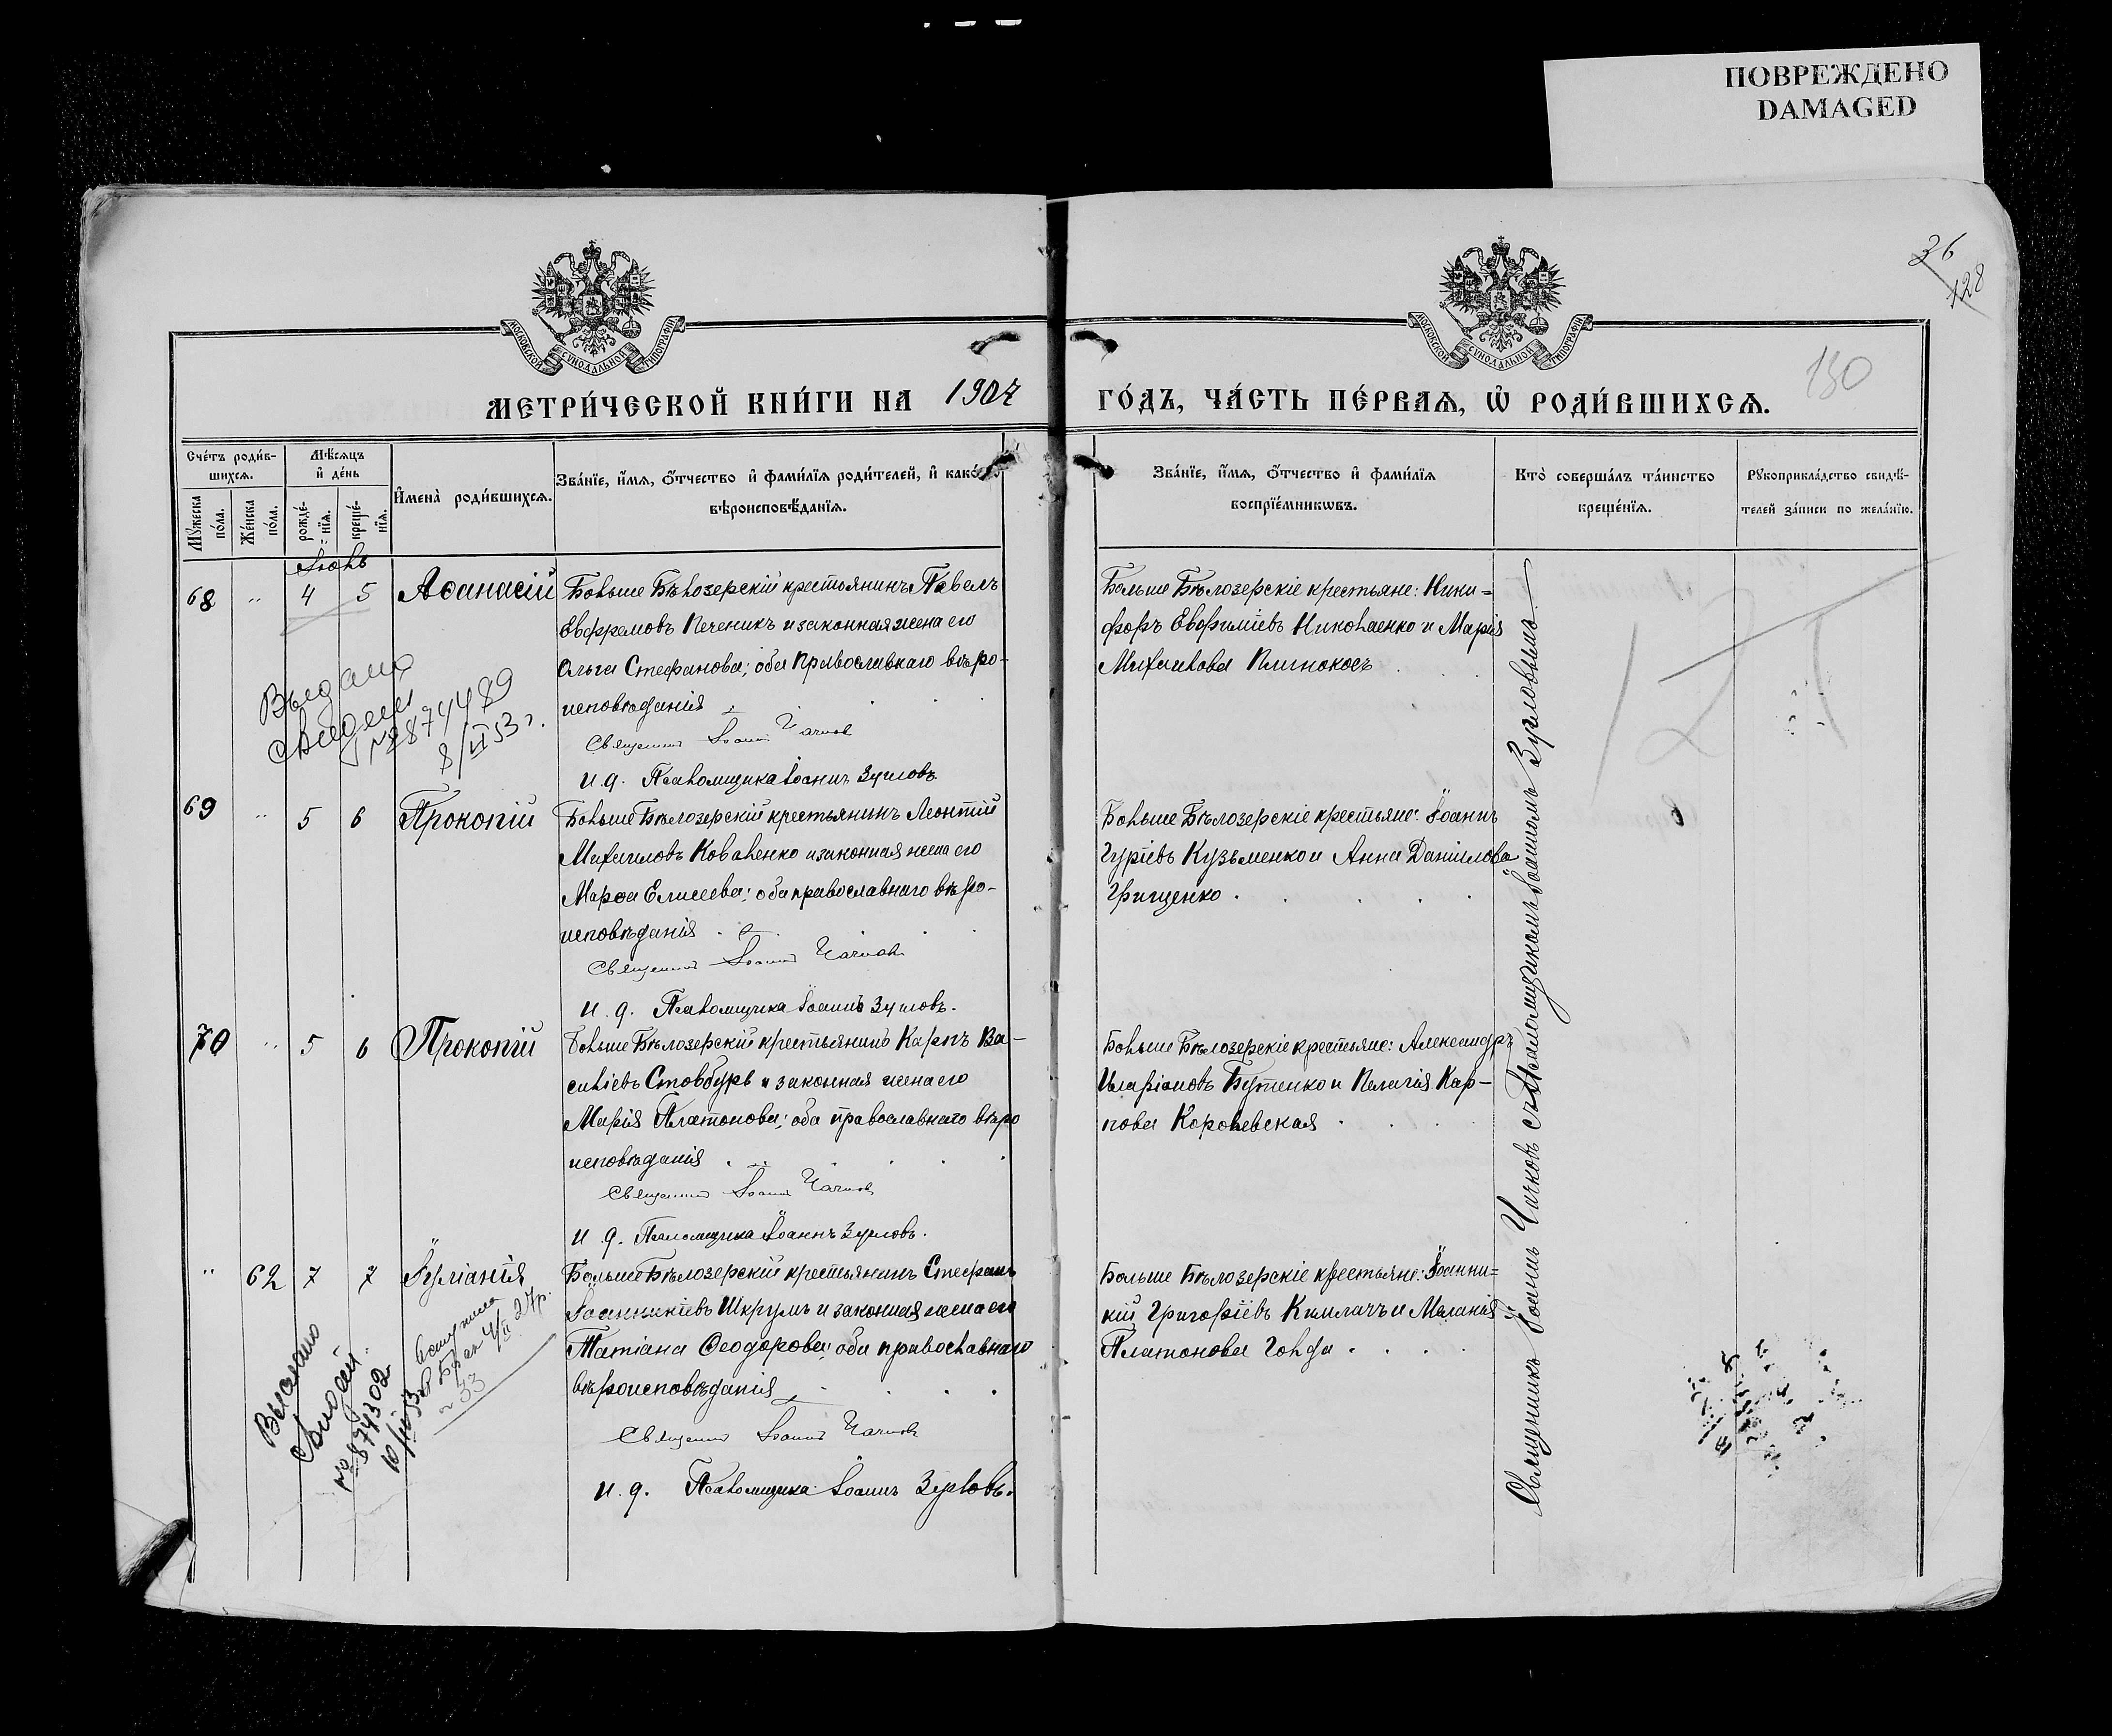 ПОВРЕЖДЕНО
DAMAGED
36
128
150
МОСКОВСКОЙ СУНОДАЛЬНОЙ ТИПОГРАФІИ
МОСКОВСКОЙ СУНОДАЛЬНОЙ ТИПОГРАФІИ
МЕТРИ́ЧЕСКОЙ КНИ́ГИ НА 1907 ГО́ДЪ, ЧА́СТЬ ПЕ́РВАѦ, Ѡ҆ РОДИ́ВШИХСѦ.
Сче́тъ роди́в-
шихсѧ.
Мꙋ́жеска по́ла.
Же́нска по́ла.
Мѣ́сѧцъ
и҆ де́нь
рожде́-
нїѧ.
креще́-
нїѧ.
И҆мена̀ роди́вшихсѧ.
Зва́нїе, и҆́мѧ, ѻ҆́тчество и҆ фами́лїѧ роди́телей, и҆ како́гѡ
вѣроисповѣ́данїѧ.
Зва́нїе, и҆́мѧ, ѻ҆́тчество и҆ фами́лїѧ
воспрїе́мникѡвъ.
Кто̀ соверша́лъ та́инство
креще́нїѧ.
Рꙋкоприкла́дство свидѣ́-
телей за́писи по жела́нїю.
Іюнь
68 " 4 5 Аѳанасій
Больше Бѣлозерскій крестьянинъ Павелъ
Евфремовъ Печеникъ и законная жена его
Ольга Стефанова; оба православнаго вѣро-
исповѣданія
Священникъ Іоаннъ Чачковъ
И. д. Псаломщика Іоаннъ Зугловъ
Больше Бѣлозерскіе крестьяне: Ники=
форъ Евфиміевъ Николаенко и Марія
Михаилова Климокосъ
Выдано
свидет
№ 2874489
8/VI 53 г.
69 " 5 6 Прокопій
Больше Бѣлозерскій крестьянинъ Леонтій
Михаиловъ Коваленко и законная жена его
Марѳа Елисеева; оба православнаго вѣро-
исповѣданія
Священникъ Іоаннъ Чачковъ
И. д. Псаломщика Іоаннъ Зугловъ.
Больше Бѣлозерскіе крестьяне: Іоаннъ
Гуріевъ Кузьменко и Анна Даніилова
Грищенко
70 " 5 6 Прокопій
Больше Бѣлозерскій крестьянинъ Карпъ Ва-
силіевъ Стовбуръ и законная жена его
Марія Платонова; оба православнаго вѣро
исповѣданія
Священникъ Іоаннъ Чачковъ
И. д. Псаломщика Іоаннъ Зугловъ.
Больше Бѣлозерскіе крестьяне: Александръ
Иларіоновъ Бутенко и Пелагія Кар-
пова Королевская
" 62 7 7 Іуліанія
Больше Бѣлозерскій крестьянинъ Стефанъ
Іоанникіевъ Шкрумъ и законная жена его
Татіана Ѳеодорова; оба православнаго
вѣроисповѣданія
Священникъ Іоаннъ Чачковъ
И. д. Псаломщика Іоаннъ Зугловъ.
Больше Бѣлозерскіе крестьяне: Іоанни=
кій Григоріевъ Кимлачъ и Меланія
Платонова Гонда
№ 874302
брак 4/II 27 р.
№ 33
Священникъ Іоаннъ Чачковъ съ Псаломщикомъ Іоанномъ Зугловымъ.